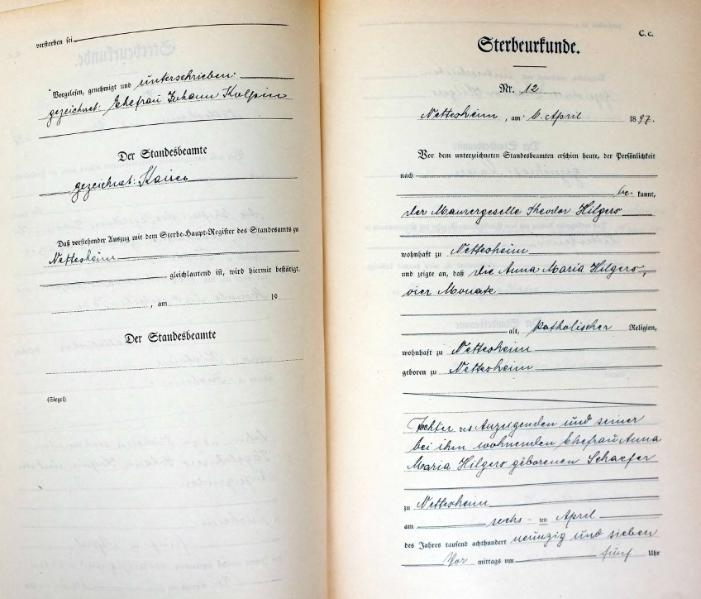 verstorben sei
Vorgelesen, genehmigt und unterschrieben:
gezeichnet: Ehefrau Johann Kolpin
Der Standesbeamte
gezeichnet: Kaiser
Daß vorstehender Auszug mit dem Sterbe-Haupt-Register des Standesamts zu
Nettersheim
gleichlautend ist, wird hiermit bestätigt.
, am 19
Der Standesbeamte
(Siegel)
C. c.
Sterbeurkunde.
Nr. 12
Nettersheim, am 6. April 1897.
Vor dem unterzeichneten Standesbeamten erschien heute, der Persönlichkeit
nach
be- kannt,
der Maurergeselle Theodor Hilgers
wohnhaft zu Nettersheim
und zeigte an, daß die Anna Maria Hilgers,
vier Monate
alt, katholischer Religion,
wohnhaft zu Nettersheim
geboren zu Nettersheim
Tochter des Anzeigenden und seiner
bei ihm wohnenden Ehefrau Anna
Maria Hilgers geborenen Schaefer
zu Nettersheim
am sechs- ten April
des Jahres tausend achthundert neunzig und sieben
Vor mittags um fünf Uhr